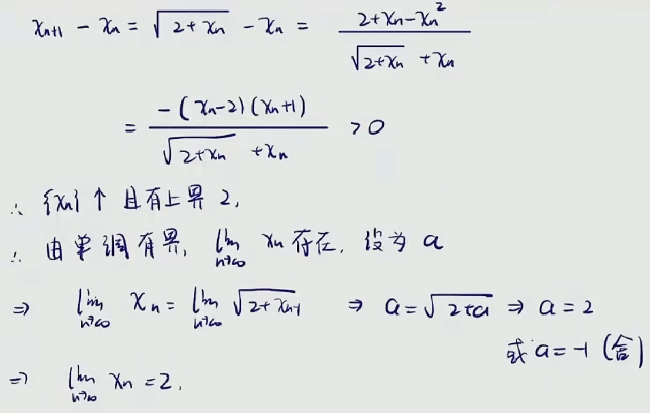 xₙ₊₁ - xₙ = √(2+xₙ) - xₙ = (2+xₙ-xₙ²)/(√(2+xₙ) + xₙ)
= (-(xₙ-2)(xₙ+1))/(√(2+xₙ) + xₙ) > 0
∴ {xₙ}↑ 且有上界 2,
∴ 由单调有界, lim_{n→∞} xₙ 存在, 设为 a
⇒ lim_{n→∞} xₙ = lim_{n→∞} √(2+xₙ₋₁) ⇒ a=√(2+a) ⇒ a=2
或 a=-1 (舍)
⇒ lim_{n→∞} xₙ = 2,